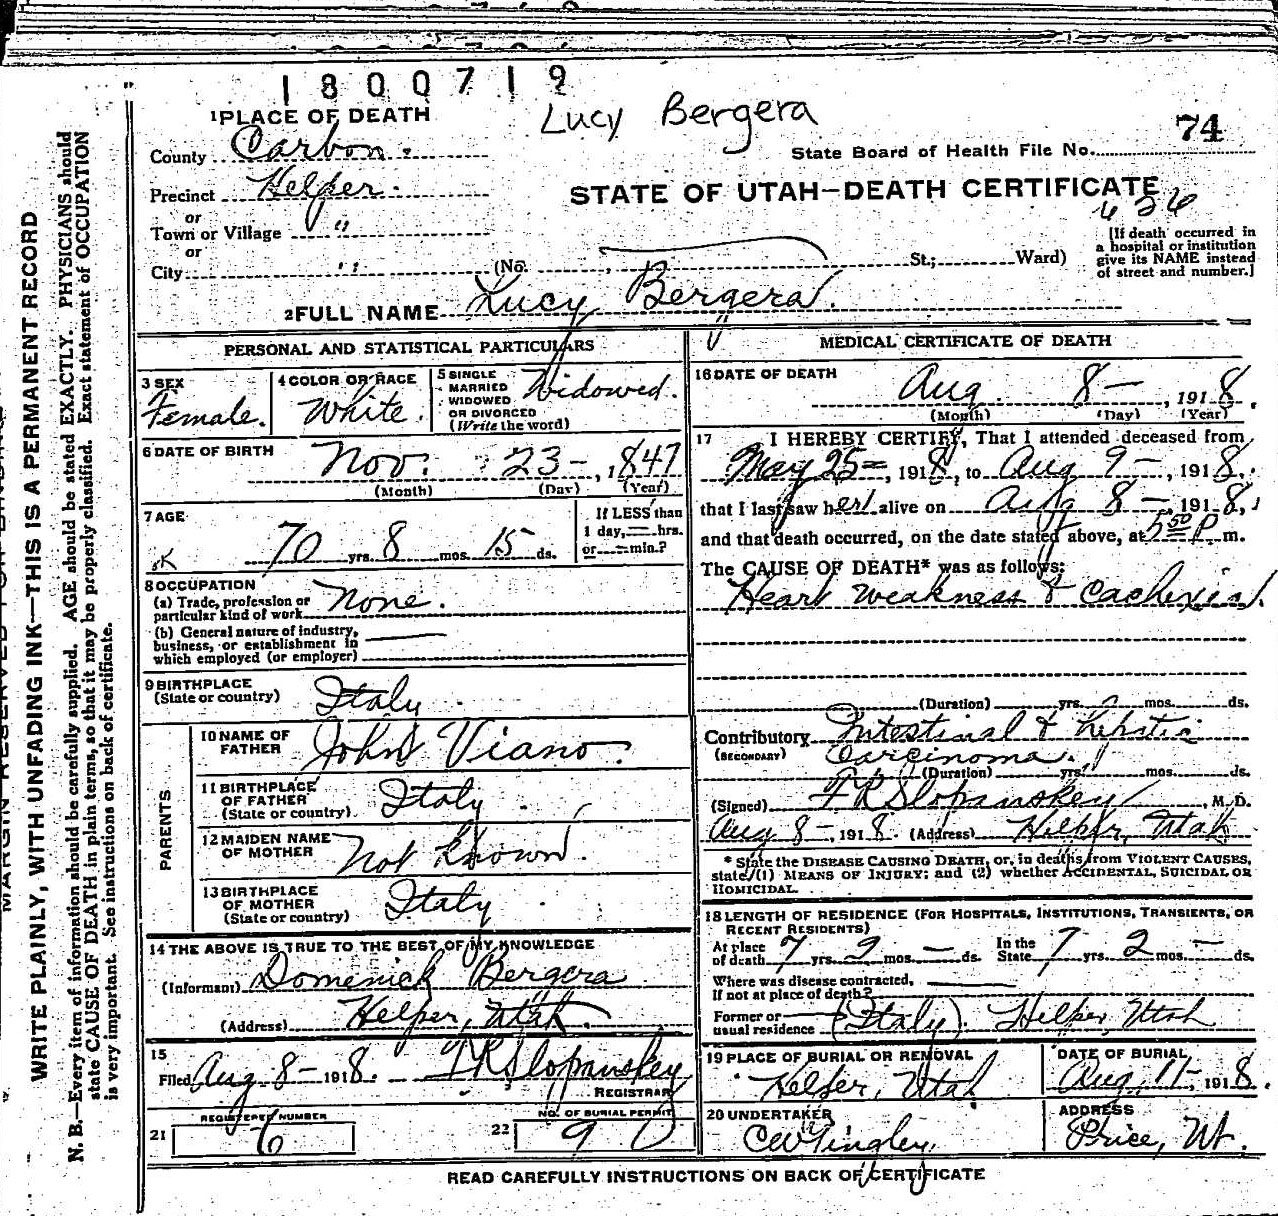 1800719
Lucy Bergera
74
State Board of Health File No.
1 PLACE OF DEATH
County Carbon.
Precinct Helper.
or
Town or Village "
or
City "
STATE OF UTAH—DEATH CERTIFICATE
626
(No. St.; Ward)
[If death occurred in
a hospital or institution
give its NAME instead
of street and number.]
2 FULL NAME Lucy Bergera.
PERSONAL AND STATISTICAL PARTICULARS
3 SEX
Female.
4 COLOR OR RACE
White.
5 SINGLE
MARRIED
WIDOWED
OR DIVORCED
(Write the word)
Widowed.
6 DATE OF BIRTH
Nov. 23-, 1847
(Month) (Day) (Year)
7 AGE
OK
70 yrs. 8 mos. 15 ds.
If LESS than
1 day, — hrs.
or — min.?
8 OCCUPATION
(a) Trade, profession or
particular kind of work None.
(b) General nature of industry,
business, or establishment in
which employed (or employer)
9 BIRTHPLACE
(State or country) Italy.
PARENTS
10 NAME OF
FATHER John Viano.
11 BIRTHPLACE
OF FATHER
(State or country) Italy.
12 MAIDEN NAME
OF MOTHER Not known.
13 BIRTHPLACE
OF MOTHER
(State or country) Italy.
14 THE ABOVE IS TRUE TO THE BEST OF MY KNOWLEDGE
(Informant) Domenick Bergera
(Address) Helper, Utah.
15
Filed Aug 8- 1918. F R Slopanskey
REGISTRAR
REGISTERED NUMBER
21 6
NO. OF BURIAL PERMIT
22 90
MEDICAL CERTIFICATE OF DEATH
16 DATE OF DEATH
Aug. 8-, 1918.
(Month) (Day) (Year)
17 I HEREBY CERTIFY, That I attended deceased from
May 25=, 1918, to Aug 9-, 1918.
that I last saw her alive on Aug 8-, 1918,
and that death occurred, on the date stated above, at 5 50 P. m.
The CAUSE OF DEATH* was as follows:
Heart weakness & Cachexia.
(Duration) yrs. mos. ds.
Contributory Intestinal & hepatic
(SECONDARY) Carcinoma.
(Duration) yrs. mos. ds.
(Signed) F R Slopanskey, M. D.
Aug 8-, 1918. (Address) Helper, Utah
* State the DISEASE CAUSING DEATH, or, in deaths from VIOLENT CAUSES,
state (1) MEANS OF INJURY; and (2) whether ACCIDENTAL, SUICIDAL OR
HOMICIDAL.
18 LENGTH OF RESIDENCE (FOR HOSPITALS, INSTITUTIONS, TRANSIENTS, OR
RECENT RESIDENTS)
At place
of death 7 yrs. 2 mos. — ds.
In the
State 7 yrs. 2 mos. — ds.
Where was disease contracted,
If not at place of death?
Former or
usual residence (Italy). Helper, Utah
19 PLACE OF BURIAL OR REMOVAL
Helper, Utah
DATE OF BURIAL
Aug. 11-, 1918.
20 UNDERTAKER
CW Tingley.
ADDRESS
Price, Ut.
READ CAREFULLY INSTRUCTIONS ON BACK OF CERTIFICATE
WRITE PLAINLY, WITH UNFADING INK—THIS IS A PERMANENT RECORD
N. B.—Every item of information should be carefully supplied. AGE should be stated EXACTLY. PHYSICIANS should
state CAUSE OF DEATH in plain terms, so that it may be properly classified. Exact statement of OCCUPATION
is very important. See instructions on back of certificate.